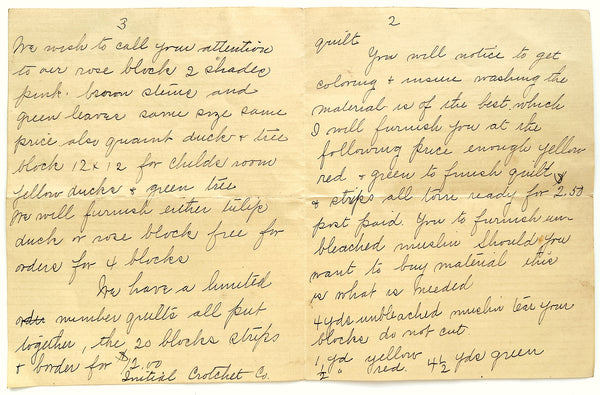 2
quilt
You will notice to get
coloring & insure washing the
material is of the best, which
I will furnish you at the
following price enough yellow
red & green to finish quilt
& strips all torn ready for $2.50
post paid. You to furnish un-
bleached muslin Should you
want to buy material this
is what is needed
4 yds unbleached muslin tear your
blocks do not cut.
1 yd yellow 4 1/2 yds green
1/2 " red.
3
We wish to call your attention
to our rose block 2 shades
pink. brown stems and
green leaves same size same
price also quaint duck & tree
block 12 x 12 for childs room
yellow ducks & green tree
We will furnish either tulip
duck or rose block free for
orders for 4 blocks
We have a limited
number quilts all put
together, the 20 blocks strips
& border for $12.00
Initial Crotchet Co.